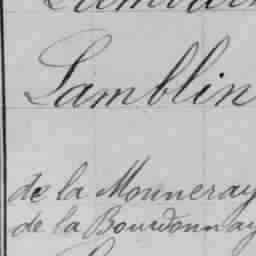 Lamblin
de la Monneray
de la Bourdonnay